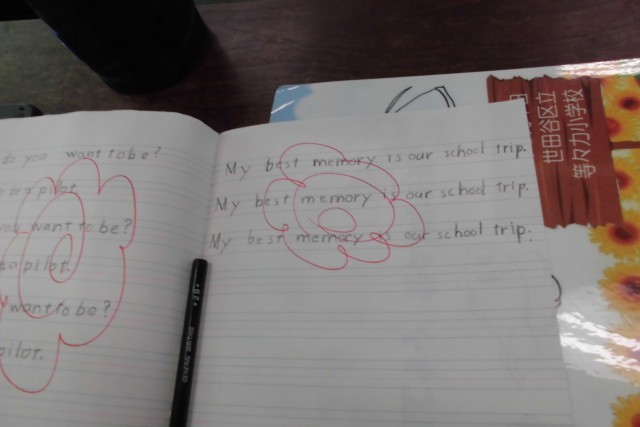 do you want to be?
pilot
want to be?
pilot.
want to be?
pilot.
My best memory is our school trip.
My best memory is our school trip.
My best memory is our school trip.
世田谷区立
等々力小学校
2B